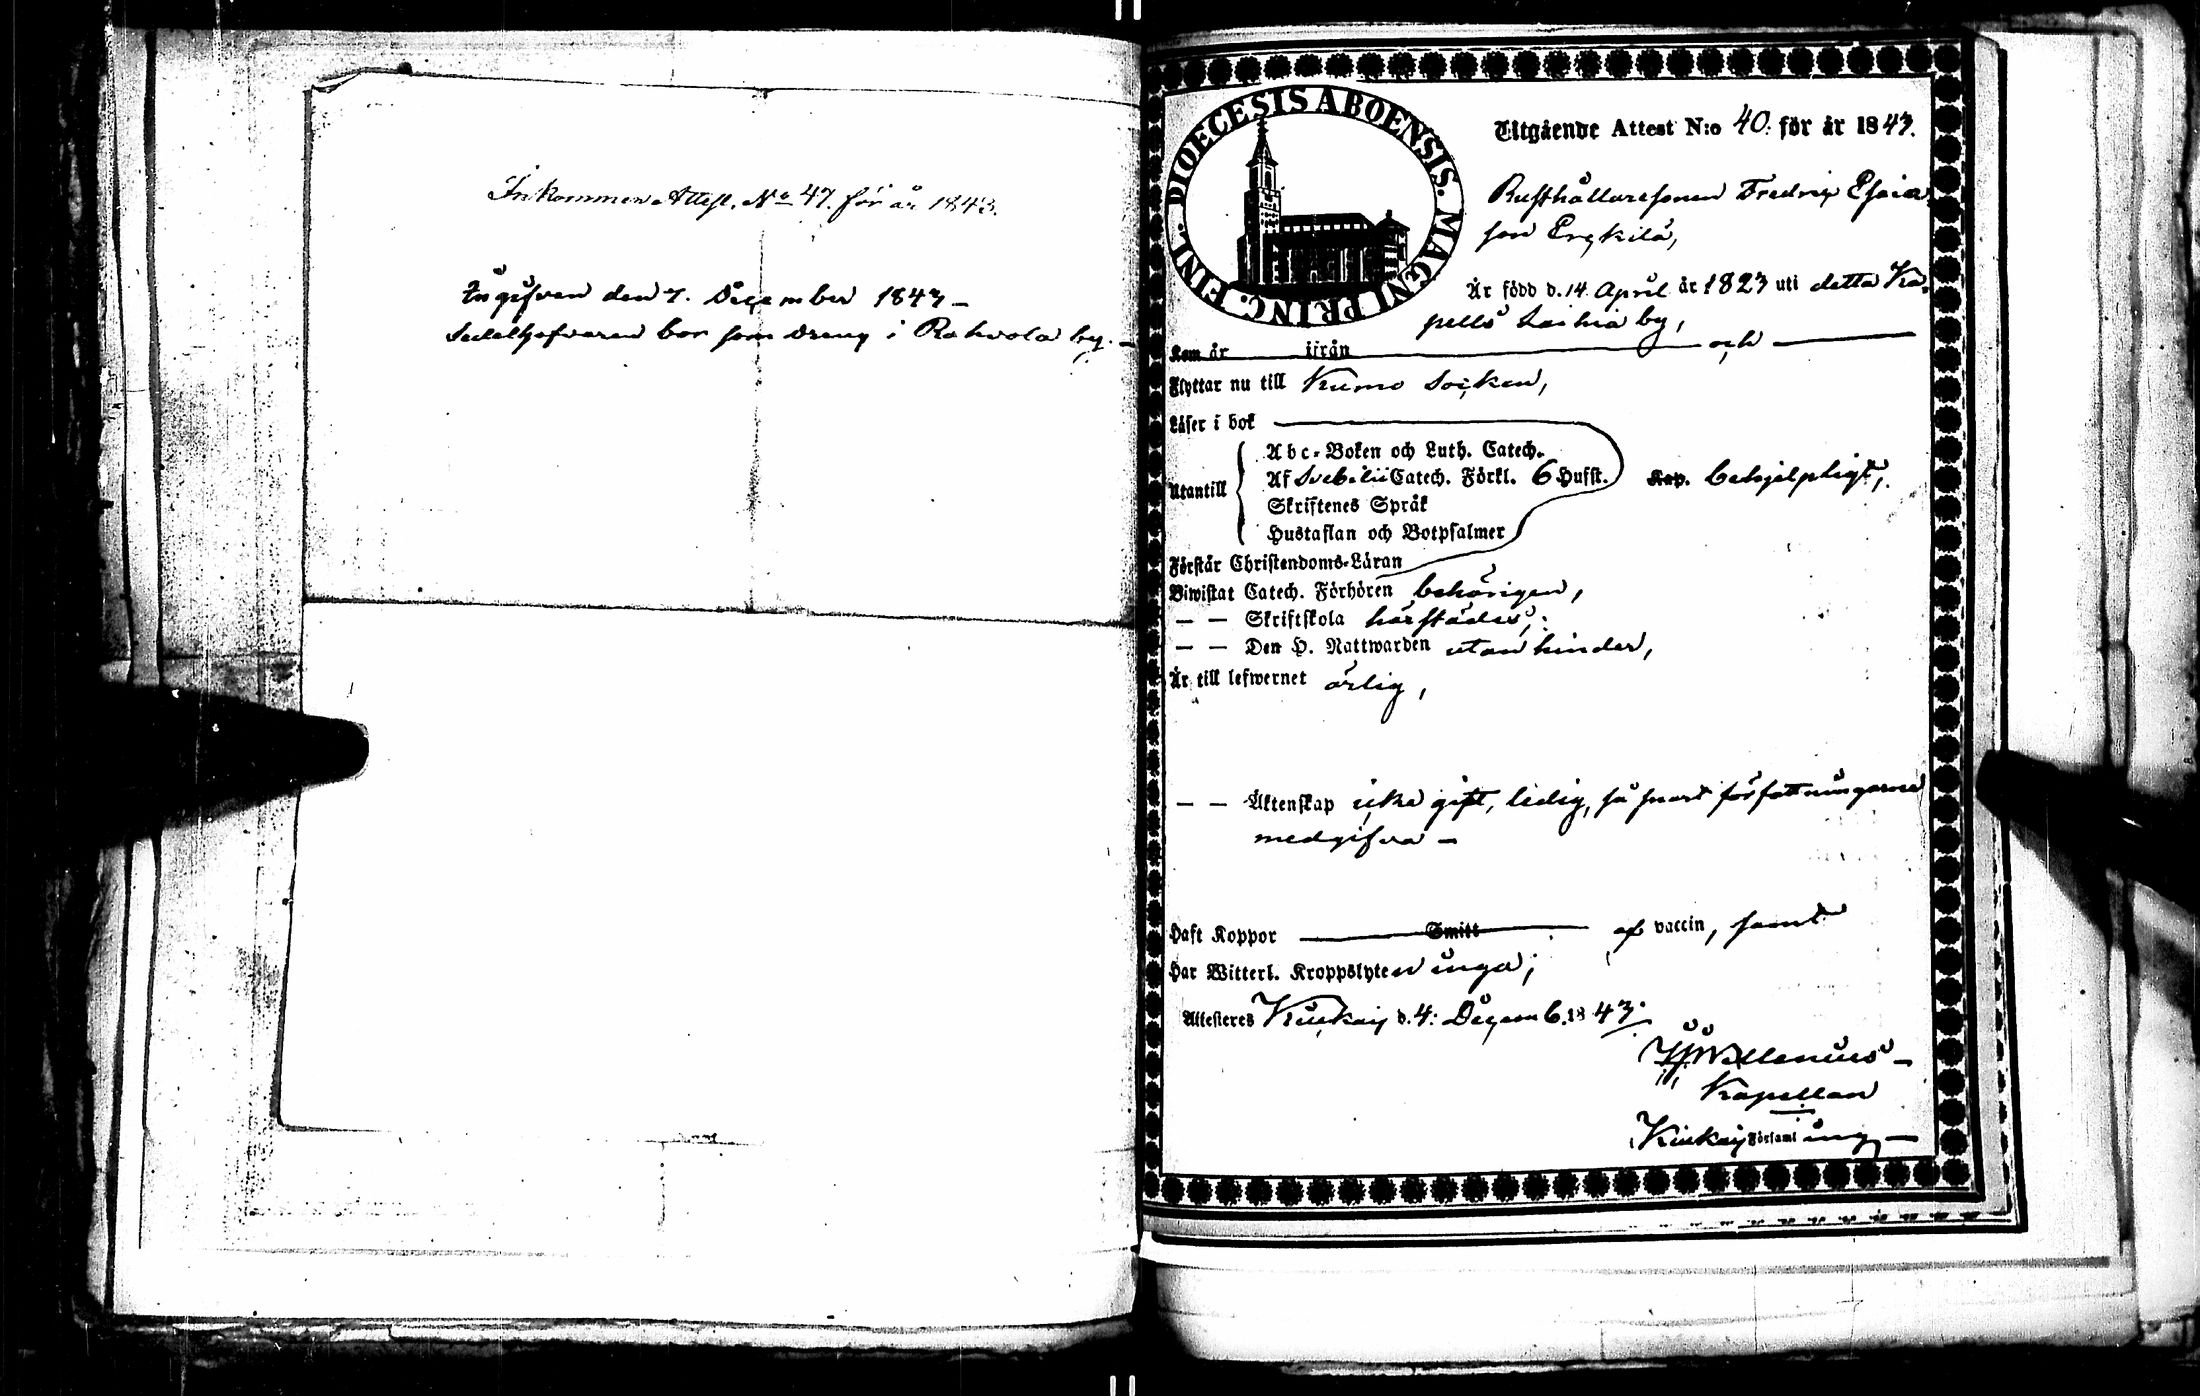 Inkommen Attest. No 47. för år 1843.
Ingifven den 7. December 1843 —
Sedelhafvaren bor som dreng i Rahvola by. —
DIOECESIS ABOENSIS. MAGNI PRINC. FINL.
Utgående Attest N:o 40. för år 1843.
Rusthållaresonen Fredrix Esaia
son Erckilä,
Är född d. 14 April år 1823 uti detta Ka-
pells Laihia by,
Kom år ifrån och
Flyttar nu till Kumo Socken,
Läser i bok
Utantill
Abc-Boken och Luth. Catech.
Af Svebilii Catech. Förkl. 6 Hufst. Kap. behjelpligt,
Skriftenes Språk
Hustaflan och Botpsalmer
Förstår Christendoms-Läran
Biwistat Catech. Förhören behörigen,
— — Skriftskola härstädes,
— — Den H. Nattwarden utan hinder,
Är till lefwernet ärlig,
— — Äktenskap icke gift, ledig, så snart författningarne
medgifva —
Haft Koppor Smitt af vaccin, samt
Har Witterl. Kroppslyten inga;
Attesteres Kiukais d. 4: Decemb. 1843.
Wallenius —
Kapellan
Kiukais Församling —